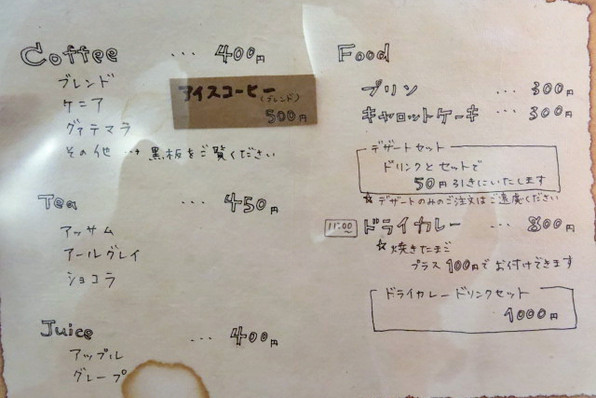 Coffee ... 400円
ブレンド
ケニア
グァテマラ
その他 → 黒板をご覧ください
アイスコーヒー
(ブレンド)
500円
Tea ... 450円
アッサム
アールグレイ
ショコラ
Juice ... 400円
アップル
グレープ
Food
プリン ... 300円
キャロットケーキ ... 300円
デザートセット
ドリンクとセットで
50円引きにいたします
☆デザートのみのご注文はご遠慮ください
11:00 ドライカレー ... 800円
☆焼きたまご
プラス100円でお付けできます
ドライカレードリンクセット
1000円